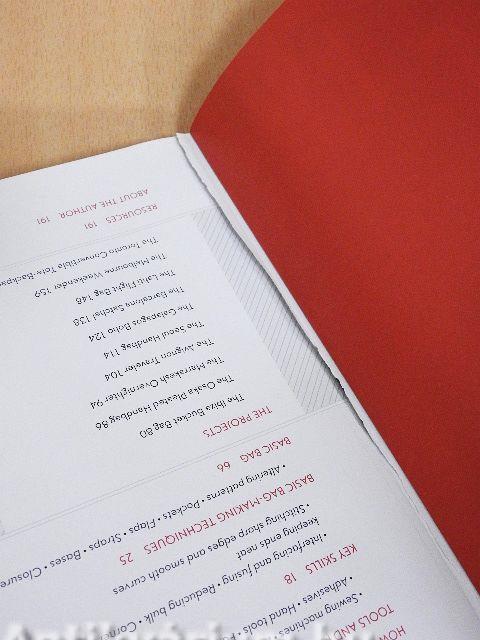 HOW
TOOLS AND
Sewing machines • Hand tools •
• Adhesives •
KEY SKILLS 18
Interfacing and fusing • Reducing bulk • Corn
keeping ends neat
• Stitching sharp edges and smooth curves
BASIC BAG-MAKING TECHNIQUES 25
• Altering patterns • Pockets • Flaps • Straps • Bases • Closure
BASIC BAG 66
THE PROJECTS
The Ibiza Bucket Bag 80
The Osaka Pleated Handbag 86
The Marrakesh Overnighter 94
The Avignon Traveler 104
The Seoul Handbag 114
The Galapagos Boho 124
The Barcelona Satchel 138
The Late Flight Bag 148
The Melbourne Weekender 159
The Toronto Convertible Tote-Backpa
RESOURCES 191
ABOUT THE AUTHOR 191